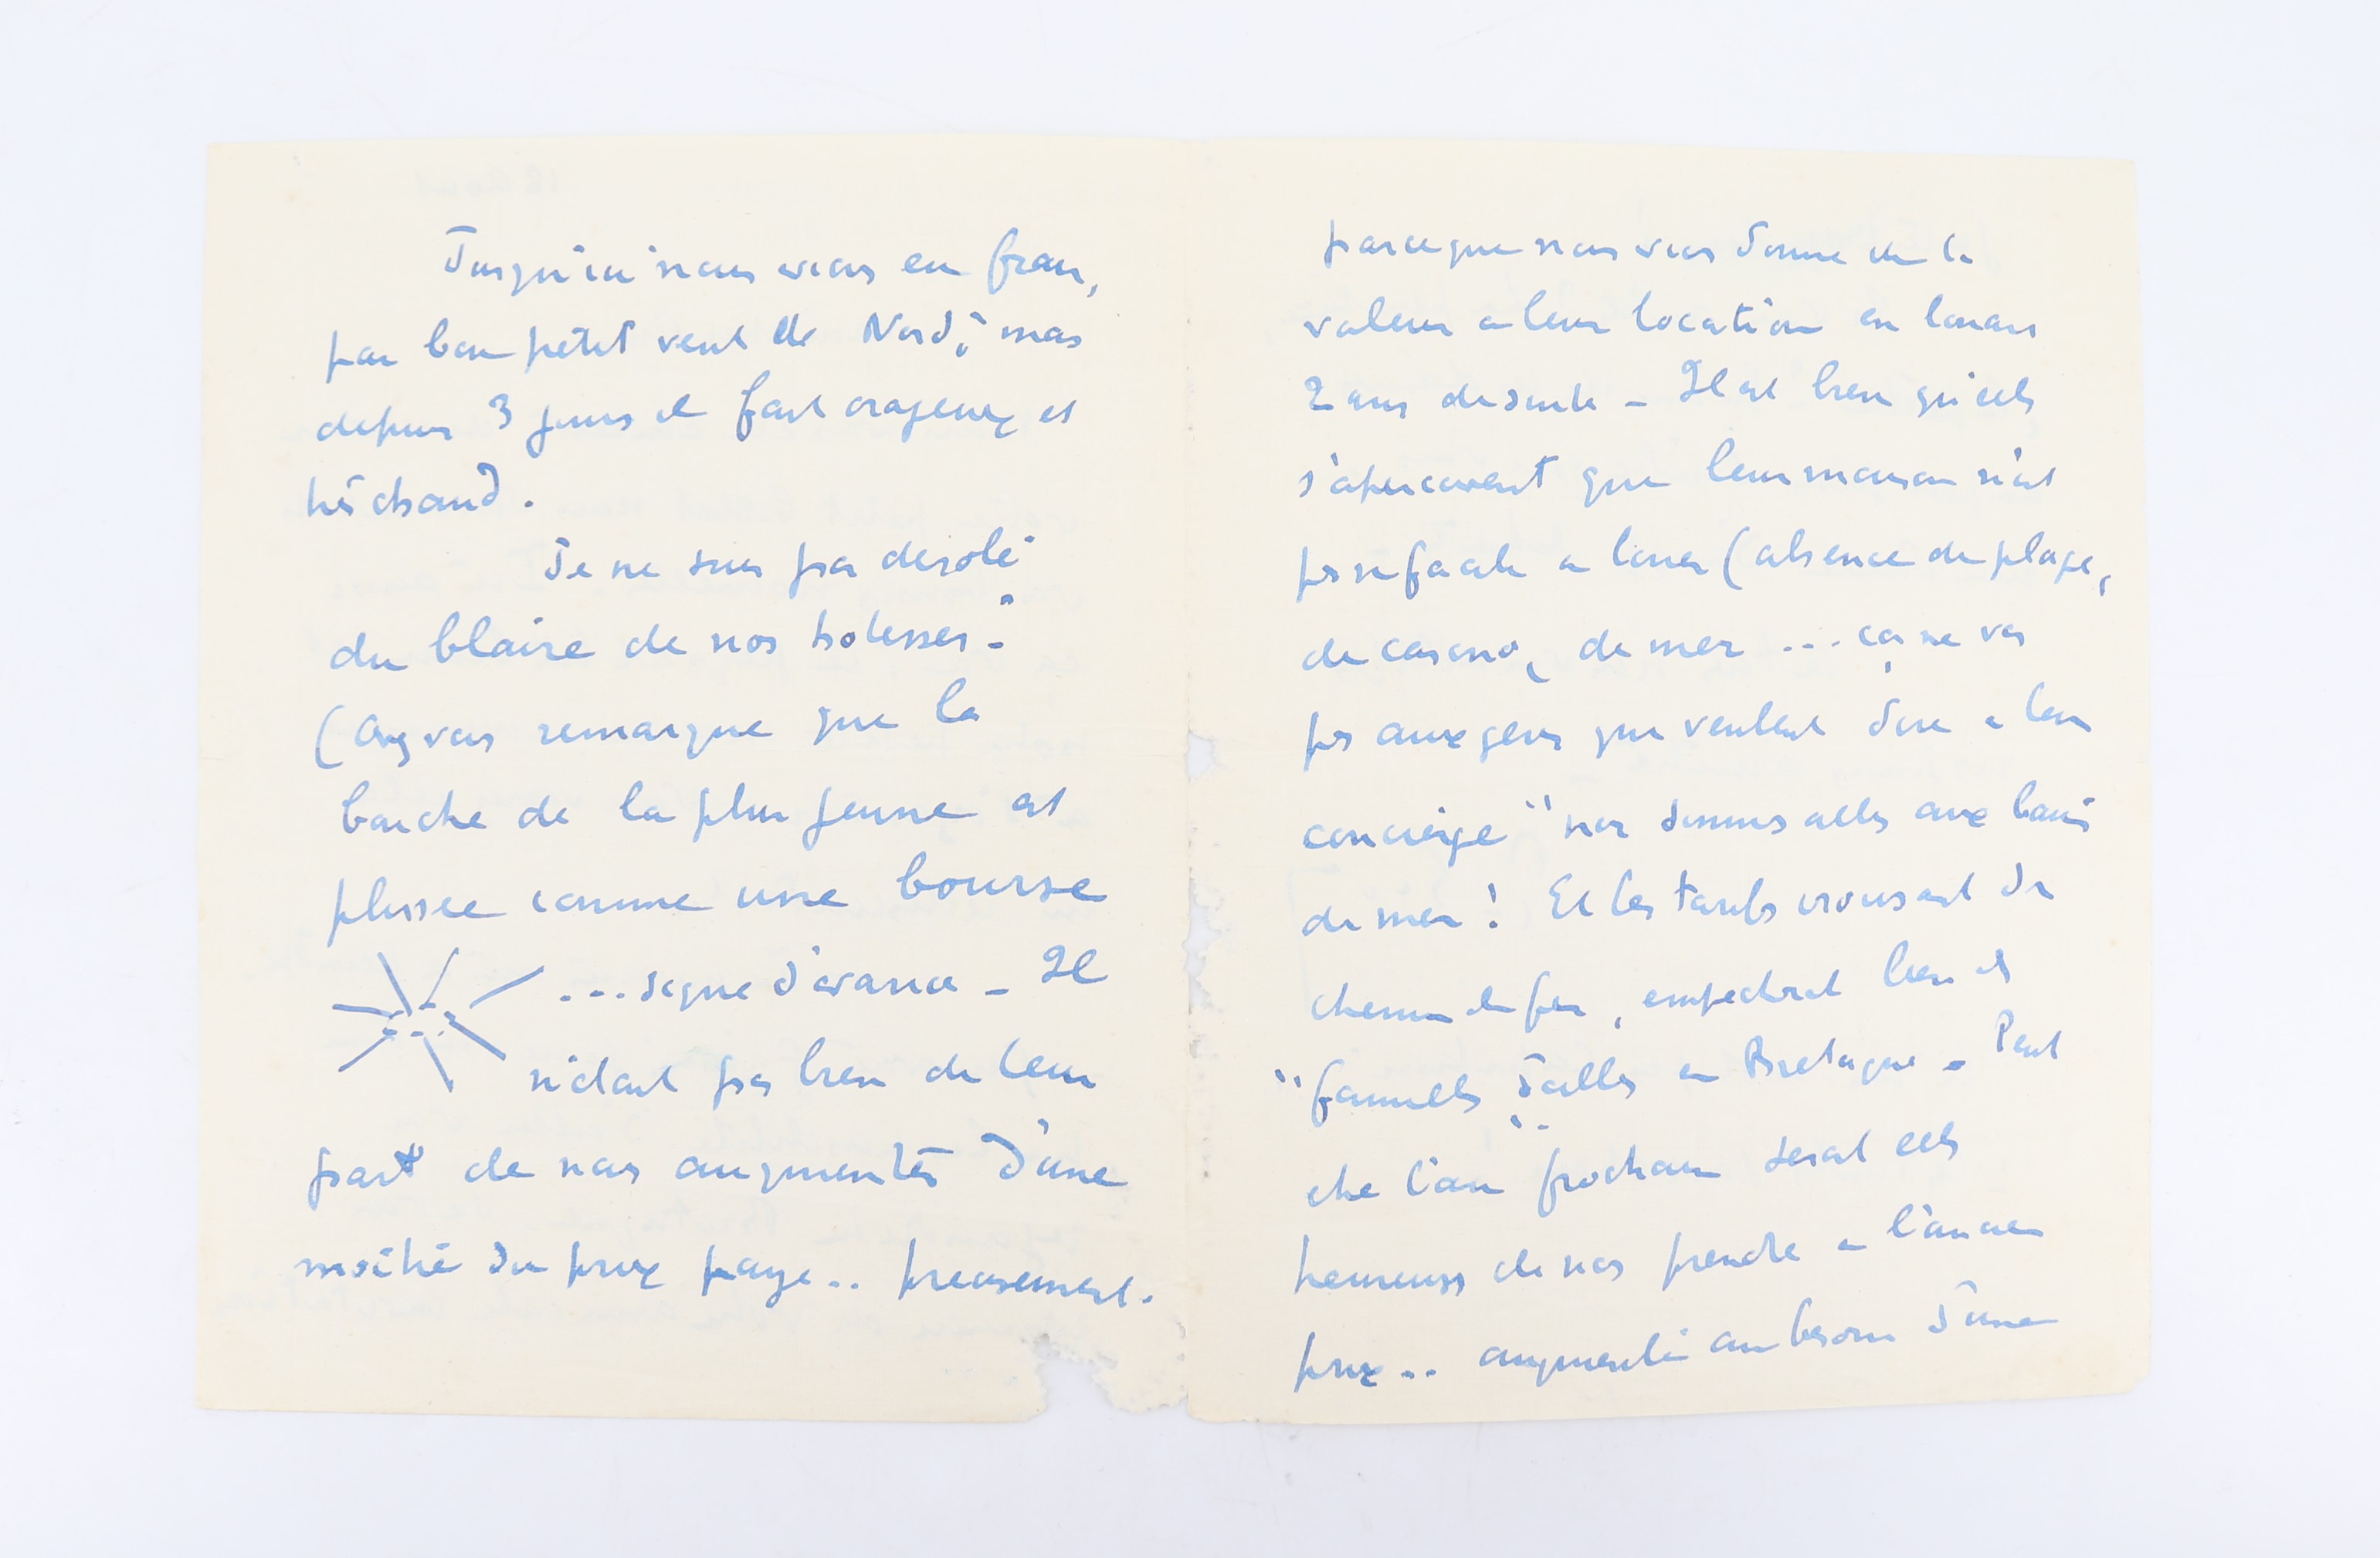 Jusqu'ici nous avions eu frais,
par bon petit vent de Nord, mais
depuis 3 jours il fait orageux et
très chaud.
Je ne suis pas désolé
du blaire de nos hotesses.
(Avez vous remarque que la
bouche de la plus jeune est
plissee comme une bourse
...signe d'avarice - Il
n'etait pas bien de leur
part de nous augmenter d'une
moitié du prix payé.. precisement.
parceque nous avons donne de la
valeur a leur location en louant
2 ans de suite - Il est bien qu'elles
s'aperçoivent que leur maison n'est
pas si facile a louer (absence de plage,
de casino, de mer ... ça ne va
pas aux gens qui veulent dire a leur
concierge "nous sommes allés aux bains
de mer! Et les tarifs croissant du
chemin de fer, empechent bien des
"familles d'aller en Bretagne - Peut
etre l'an prochain serait elles
heureuses de nous prendre a l'ancien
prix.. augmenté au besoin d'une